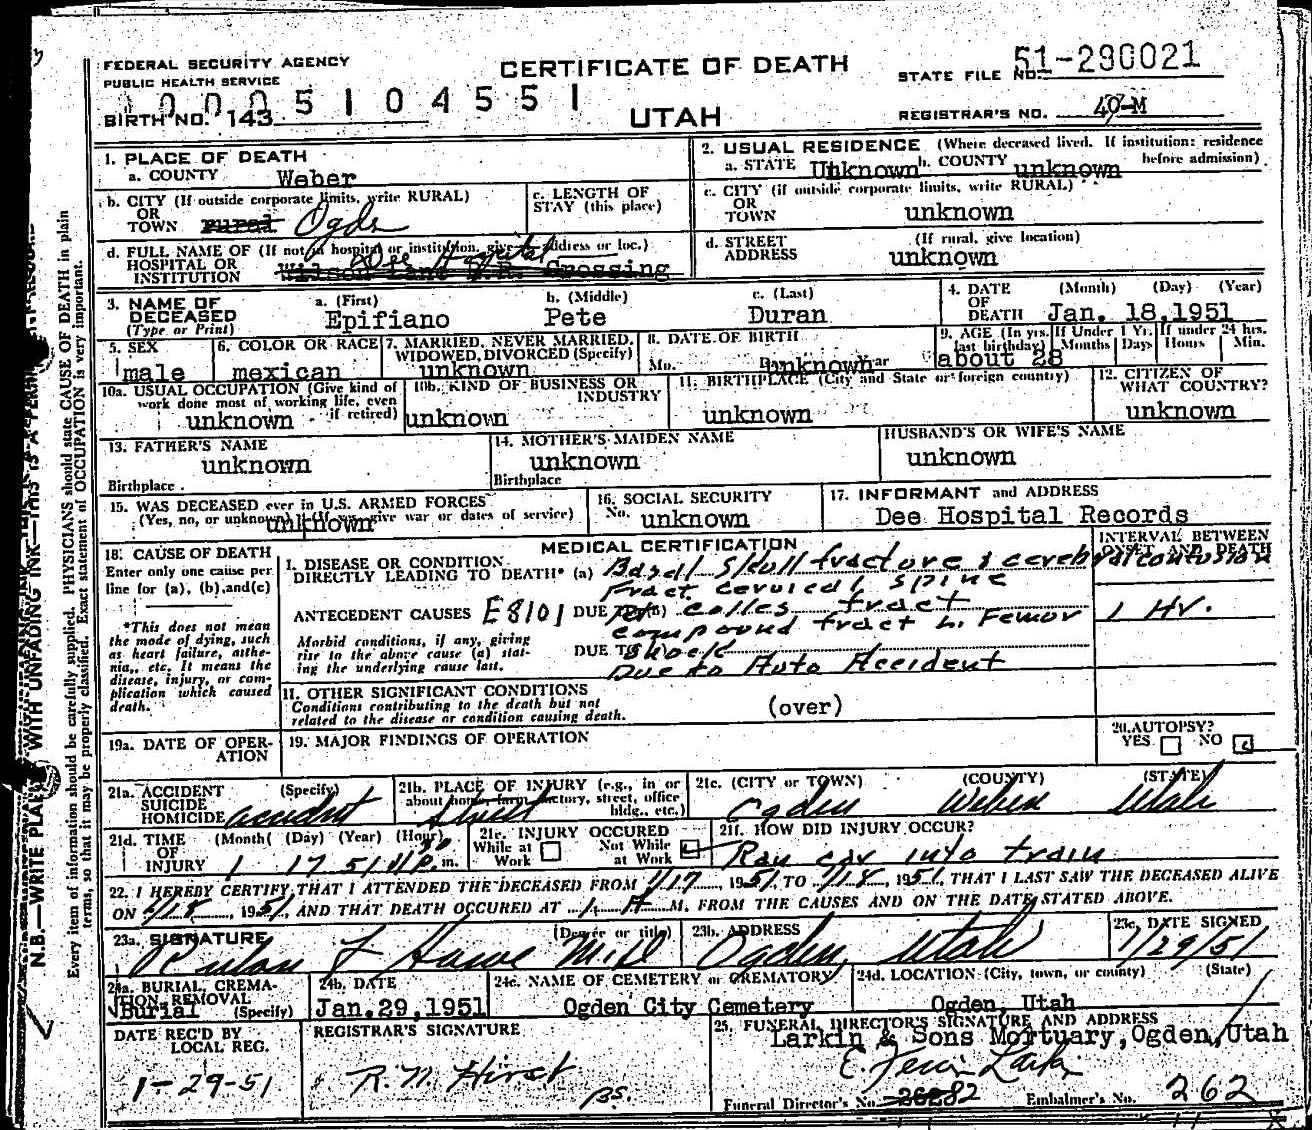 FEDERAL SECURITY AGENCY
PUBLIC HEALTH SERVICE
CERTIFICATE OF DEATH
STATE FILE NO. 51-290021
0005104551
BIRTH NO. 143
UTAH
REGISTRAR'S NO. 40-M
1. PLACE OF DEATH
a. COUNTY Weber
2. USUAL RESIDENCE (Where deceased lived. If institution: residence before admission)
a. STATE Unknown b. COUNTY unknown
b. CITY (If outside corporate limits, write RURAL) OR TOWN rural Ogden
c. LENGTH OF STAY (this place)
c. CITY (if outside corporate limits, write RURAL) OR TOWN unknown
d. FULL NAME OF (If not in hospital or institution, give address or loc.) HOSPITAL OR INSTITUTION Dee Hospital
Wilson Lane R.R. Crossing
d. STREET ADDRESS (If rural, give location) unknown
3. NAME OF DECEASED (Type or Print)
a. (First) Epifiano b. (Middle) Pete c. (Last) Duran
4. DATE OF DEATH (Month) (Day) (Year) Jan. 18,1951
5. SEX male
6. COLOR OR RACE mexican
7. MARRIED, NEVER MARRIED, WIDOWED, DIVORCED (Specify) unknown
8. DATE OF BIRTH Mo. unknown Year
9. AGE (In yrs. last birthday) about 28 If Under 1 Yr. Months Days If under 24 hrs. Hours Min.
10a. USUAL OCCUPATION (Give kind of work done most of working life, even if retired) unknown
10b. KIND OF BUSINESS OR INDUSTRY unknown
11. BIRTHPLACE (City and State or foreign country) unknown
12. CITIZEN OF WHAT COUNTRY? unknown
13. FATHER'S NAME unknown
Birthplace
14. MOTHER'S MAIDEN NAME unknown
Birthplace
HUSBAND'S OR WIFE'S NAME unknown
15. WAS DECEASED ever in U.S. ARMED FORCES (Yes, no, or unknown) (If yes, give war or dates of service) unknown
16. SOCIAL SECURITY No. unknown
17. INFORMANT and ADDRESS Dee Hospital Records
18. CAUSE OF DEATH
Enter only one cause per line for (a), (b), and (c)
*This does not mean the mode of dying, such as heart failure, asthenia, etc. It means the disease, injury, or complication which caused death.
MEDICAL CERTIFICATION
INTERVAL BETWEEN ONSET AND DEATH
I. DISEASE OR CONDITION DIRECTLY LEADING TO DEATH* (a) Basal Skull fracture & cerebral contusion
Fract cervical spine
ANTECEDENT CAUSES E8101 DUE TO (b) colles fract 1 Hr.
compound fract L. Femur
Morbid conditions, if any, giving rise to the above cause (a) stating the underlying cause last.
DUE TO Shock
Due to Auto Accident
II. OTHER SIGNIFICANT CONDITIONS
Conditions contributing to the death but not related to the disease or condition causing death.
(over)
19a. DATE OF OPERATION
19. MAJOR FINDINGS OF OPERATION
20. AUTOPSY? YES NO
21a. ACCIDENT SUICIDE HOMICIDE (Specify) accident
21b. PLACE OF INJURY (e.g., in or about home, farm, factory, street, office bldg., etc.) Street
21c. (CITY or TOWN) (COUNTY) (STATE) Ogden Weber Utah
21d. TIME OF INJURY (Month) (Day) (Year) (Hour) 1 17 51 11 30 P. m.
21e. INJURY OCCURED While at Work Not While at Work
21f. HOW DID INJURY OCCUR? Ran car into train
22. I HEREBY CERTIFY THAT I ATTENDED THE DECEASED FROM 1/17, 1951, TO 1/18, 1951, THAT I LAST SAW THE DECEASED ALIVE
ON 1/18, 1951, AND THAT DEATH OCCURED AT 1 A M. FROM THE CAUSES AND ON THE DATE STATED ABOVE.
23a. SIGNATURE (Degree or title) Rulon F Howe M.D.
23b. ADDRESS Ogden, Utah
23c. DATE SIGNED 1/29/51
24a. BURIAL, CREMATION, REMOVAL (Specify) Burial
24b. DATE Jan.29,1951
24c. NAME OF CEMETERY or CREMATORY Ogden City Cemetery
24d. LOCATION (City, town, or county) (State) Ogden, Utah
DATE REC'D BY LOCAL REG. 1-29-51
REGISTRAR'S SIGNATURE R.M. Hirst
BS.
25. FUNERAL DIRECTOR'S SIGNATURE AND ADDRESS
Larkin & Sons Mortuary,Ogden,Utah
Funeral Director's No. 82 Embalmer's No. 262
N.B.—WRITE PLAINLY WITH UNFADING INK—THIS IS A
Every item of information should be carefully supplied. PHYSICIANS should state CAUSE OF DEATH in plain
terms, so that it may be properly classified. Exact statement of OCCUPATION is very important.